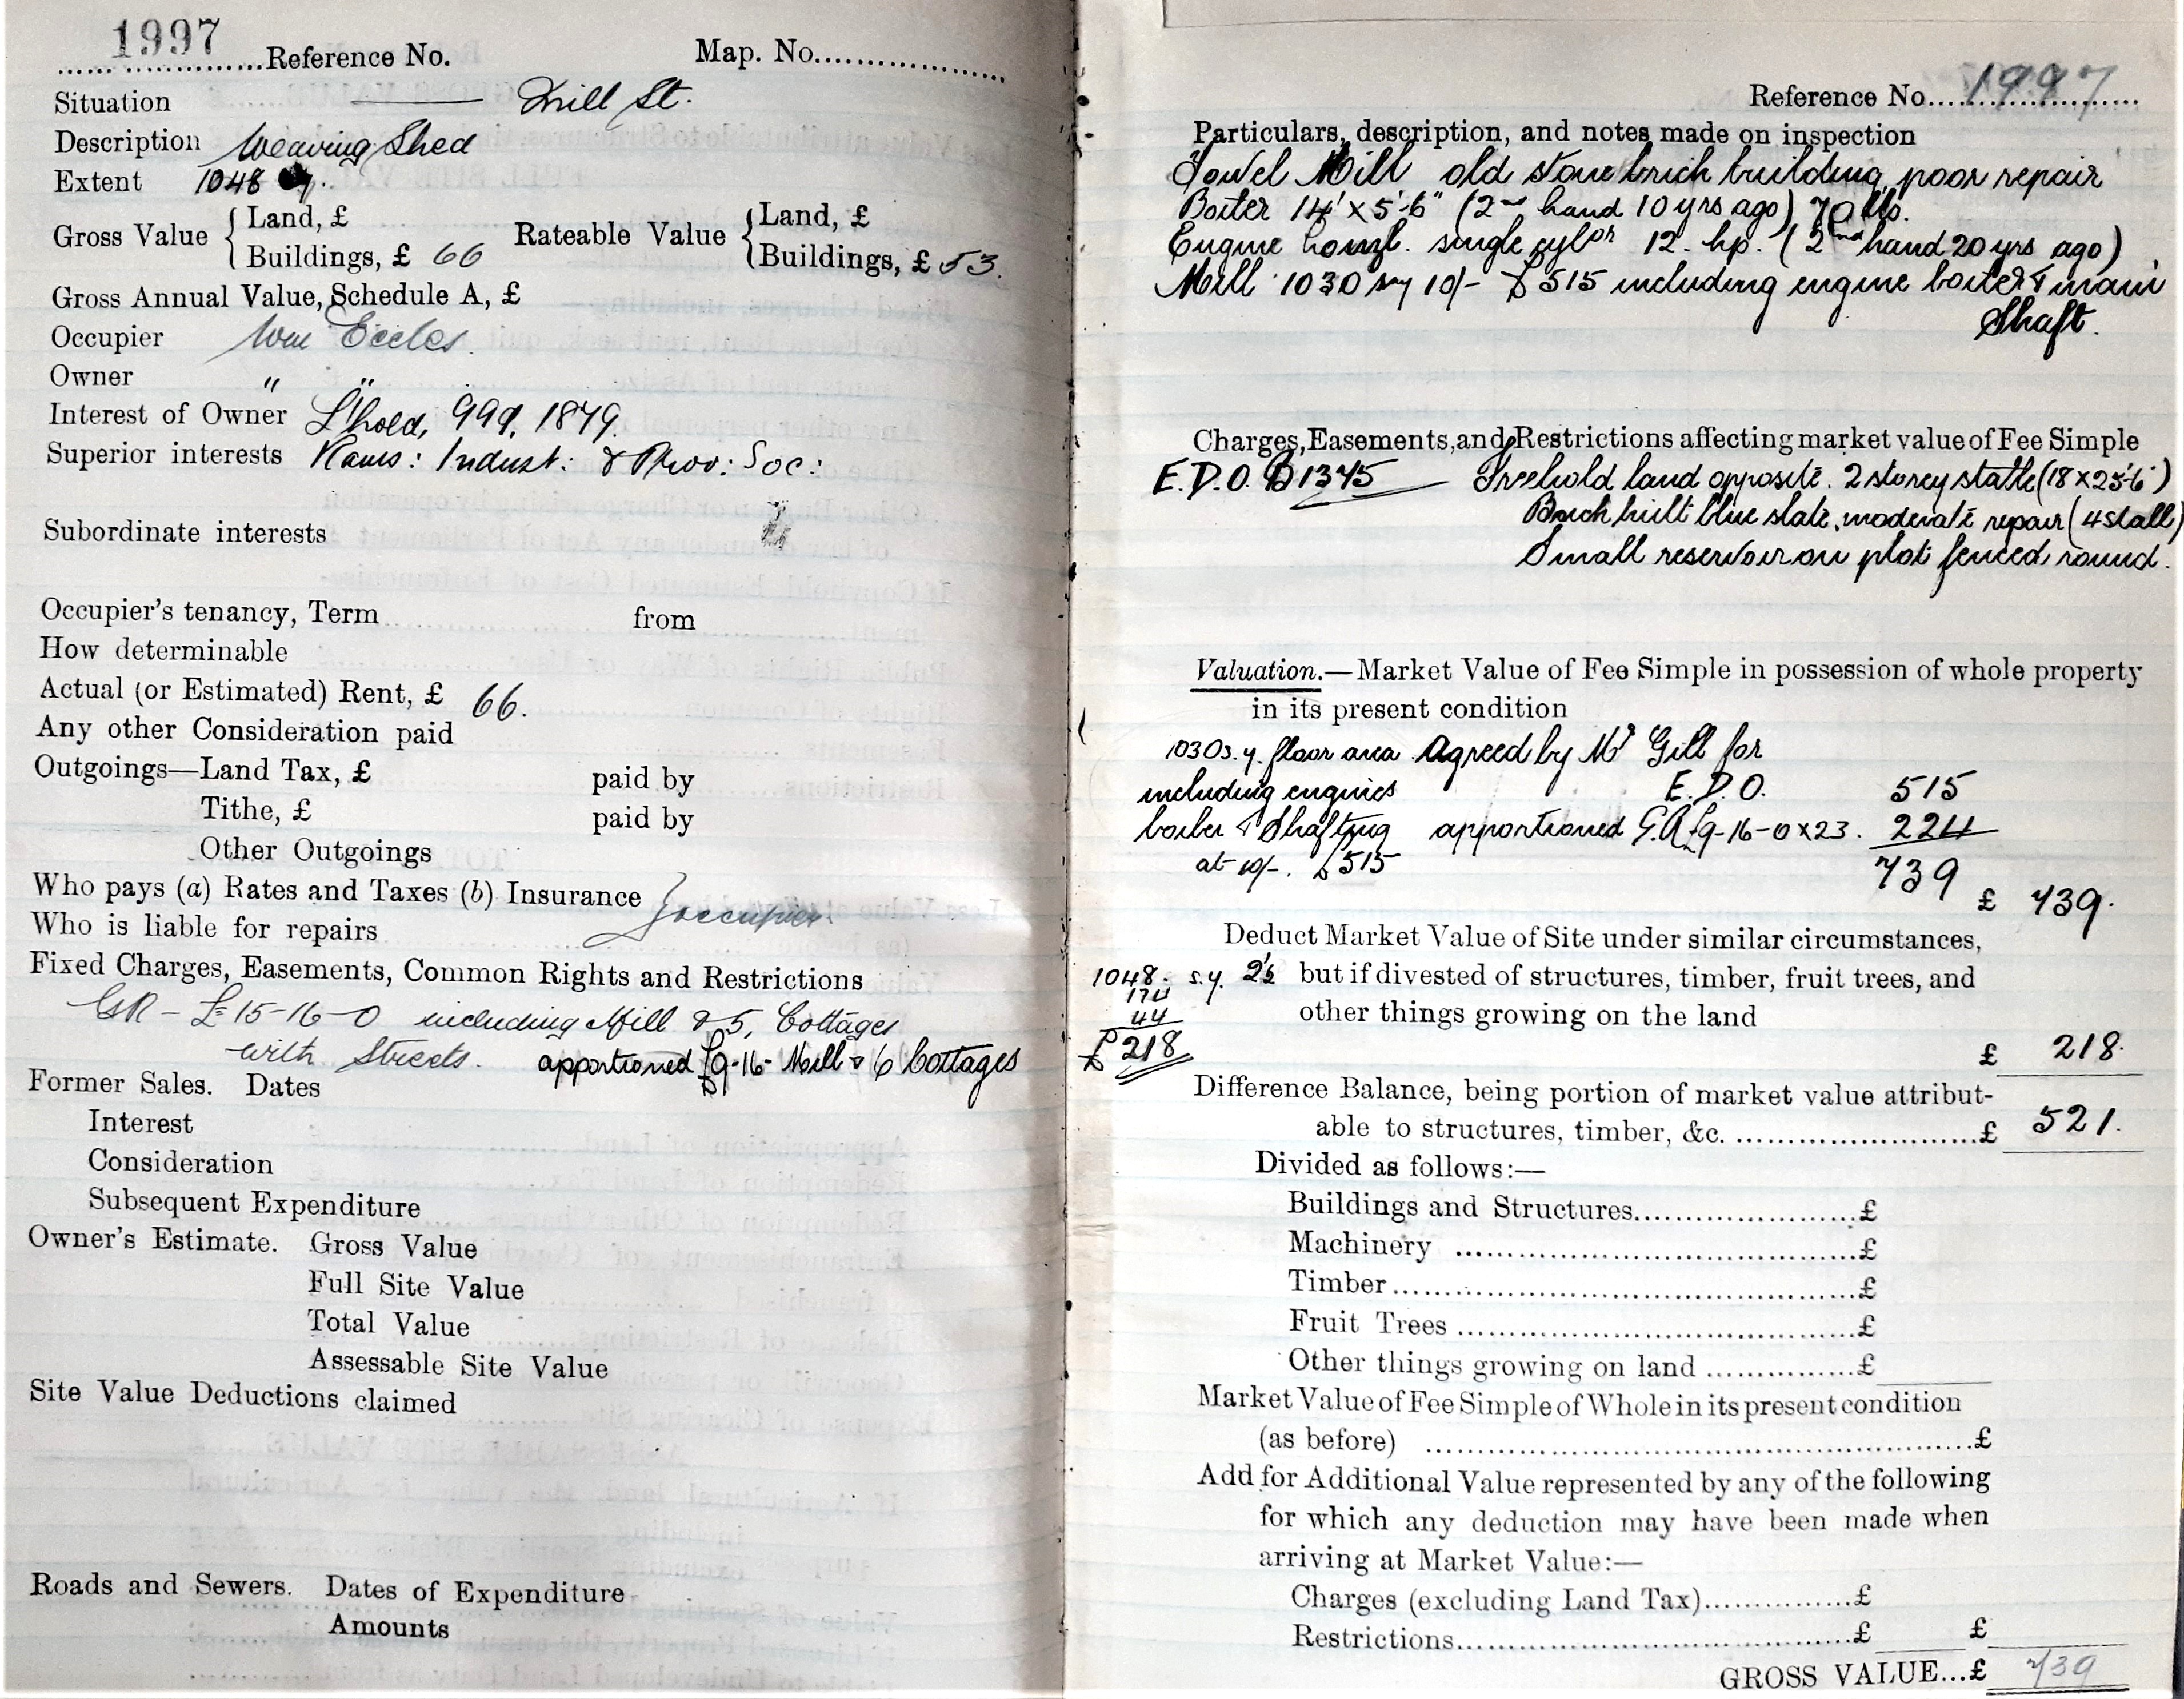 1997
Reference No. Map. No.
Situation Mill St.
Description Weaving Shed
Extent 1048
Gross Value { Land, £
Buildings, £ 66
Rateable Value { Land, £
Buildings, £ 53.
Gross Annual Value, Schedule A, £
Occupier Wm Eccles.
Owner " "
Interest of Owner L'hold, 999, 1879.
Superior interests Rams: Indust: & Prov: Soc:
Subordinate interests
Occupier's tenancy, Term from
How determinable
Actual (or Estimated) Rent, £ 66.
Any other Consideration paid
Outgoings—Land Tax, £ paid by
Tithe, £ paid by
Other Outgoings
Who pays (a) Rates and Taxes (b) Insurance } occupier.
Who is liable for repairs
Fixed Charges, Easements, Common Rights and Restrictions
GR - £15-16-0 including Mill & 5, Cottages
with Streets. apportioned £9-16- Mill & 6 Cottages
Former Sales. Dates
Interest
Consideration
Subsequent Expenditure
Owner's Estimate. Gross Value
Full Site Value
Total Value
Assessable Site Value
Site Value Deductions claimed
Roads and Sewers. Dates of Expenditure
Amounts
Reference No. 1997
Particulars, description, and notes made on inspection
Towel Mill old stone brick building poor repair
Boiler 14' x 5'-6" (2nd hand 10 yrs ago) 70 lbs.
Engine horizl. single cyldr 12. hp. (2nd hand 20 yrs ago)
Mill 1030 sy 10/- £515 including engine boiler & main
Shaft.
Charges, Easements, and Restrictions affecting market value of Fee Simple
E.D.O. B1345 Freehold land opposite. 2 storey stable (18 x 25'6")
Brick built blue slate, moderate repair (4 stall)
Small reservoir on plot fenced round.
Valuation.—Market Value of Fee Simple in possession of whole property
in its present condition
1030 s.y. floor area Agreed by Mr Gill for
including engines E.D.O. 515
boiler & Shafting apportioned G.R £9-16-0 x 23. 224
at 10/-. £515 739
£ 739.
Deduct Market Value of Site under similar circumstances,
1048. s.y. but if divested of structures, timber, fruit trees, and
174
44 other things growing on the land
£218 £ 218.
Difference Balance, being portion of market value attribut-
able to structures, timber, &c. £ 521.
Divided as follows:—
Buildings and Structures £
Machinery £
Timber £
Fruit Trees £
Other things growing on land £
Market Value of Fee Simple of Whole in its present condition
(as before) £
Add for Additional Value represented by any of the following
for which any deduction may have been made when
arriving at Market Value:—
Charges (excluding Land Tax) £
Restrictions £ £
GROSS VALUE...£ 739